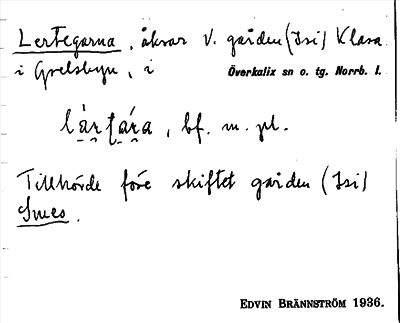 Lertegarna, åkrar V. gården (Isi) Klasa
i Grelsbyn, i Överkalix sn o. tg. Norrb. l.
lạ̈rṭạ́ra, bf. m. pl.
Tillhörde före skiftet gården (Isi)
Smes.
EDVIN BRÄNNSTRÖM 1936.